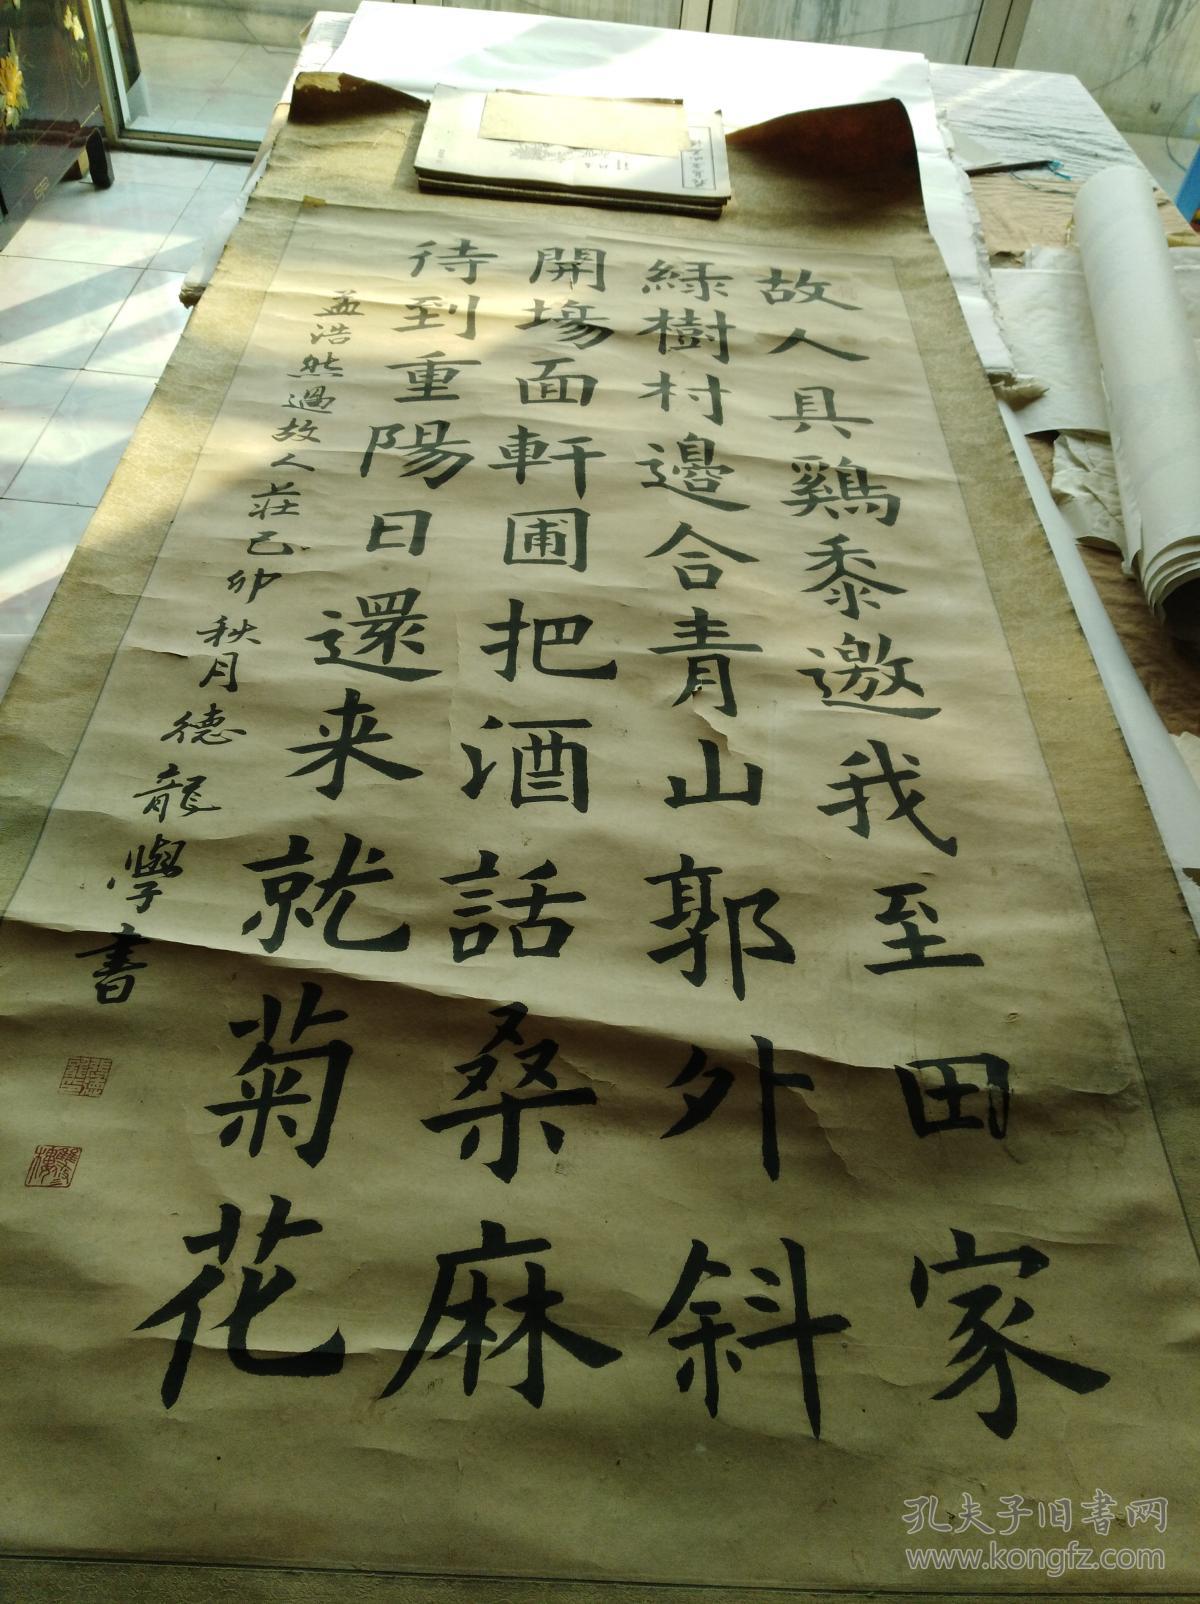 故人具鷄黍邀我至田家
緑樹村邊合青山郭外斜
開場面軒圃把酒話桑麻
待到重陽日還来就菊花
孟浩然過故人莊己卯秋月德龍學書
孔夫子旧书网
www.kongfz.com